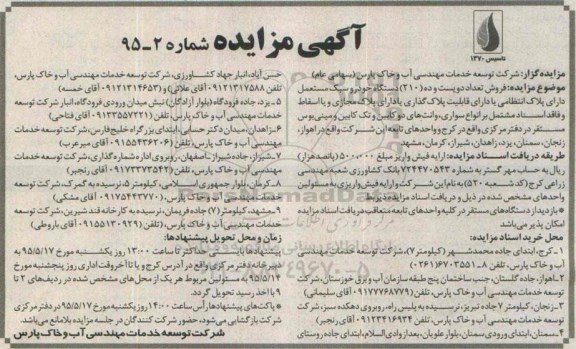 تاسیس ۱۳۷۰
آگهی مزایده شماره ۲-۹۵
مزایده گزار: شرکت توسعه خدمات مهندسی آب و خاک پارس (سهامی عام)
موضوع مزایده: فروش تعداد دویست و ده (۲۱۰) دستگاه خودرو سبک مستعمل
دارای پلاک انتظامی یا دارای قابلیت پلاک گذاری یا دارای پلاک مجازی و یا اسقاط
و فاقد اسناد مشتمل بر انواع سواری، وانت های دو کابین و تک کابین و مینی بوس
مستقر در دفتر مرکزی واقع در کرج و واحدهای تابعه این شرکت واقع در اهواز،
زنجان، سمنان، یزد، زاهدان، شیراز، کرمان، مشهد.
طریقه دریافت اسناد مزایده: ارایه فیش واریز مبلغ ۵۰۰,۰۰۰ (پانصد هزار)
ریال به حساب مهر گستر به شماره ۷۲۴۴۷۰۵۴۳ بانک کشاورزی شعبه مهندسی
زراعی کرج (کد شعبه ۵۲۰) به نام این شرکت و ارایه فیش واریزی به مسئولین
واحدهای مشخص شده در ذیل و دریافت اسناد مزایده.
* بازدید از دستگاه های مستقر در کلیه واحدهای تابعه متعاقب دریافت اسناد مزایده
امکان پذیر می باشد
محل خرید اسناد مزایده:
۱- کرج، ابتدای جاده محمدشهر (کیلومتر ۷)، شرکت توسعه خدمات مهندسی
آب و خاک پارس، تلفن ۸-۰۲۶۱۶۷۰۳۵۵۱
۲- اهواز، جاده گلستان، جنب ساختمان پنج طبقه سازمان آب و برق خوزستان، شرکت
توسعه خدمات مهندسی آب و خاک پارس، تلفن (۰۹۱۷۷۷۶۸۷۷۹ آقای سلیمانی)
۳- زنجان، کیلومتر ۷ جاده تبریز، نرسیده به پلیس راه، روبروی دهکده سبز، شرکت
توسعه خدمات مهندسی آب و خاک پارس، تلفن (۰۹۱۲۳۴۱۶۹۳۴ آقای رنجبر)
۴- سمنان، ابتدای ورودی سمنان، بلوار علویان، بعد از وادی السلام، ابتدای جاده روستای
حسن آباد، انبار جهاد کشاورزی، شرکت توسعه خدمات مهندسی آب و خاک پارس،
تلفن (۰۹۱۲۱۳۱۷۵۸۸ آقای علائی) و (۰۹۱۲۱۳۱۴۶۵۳ آقای خمسه)
۵- یزد، جاده فرودگاه (بلوار آزادگان) نبش میدان ورودی فرودگاه، انبار شرکت توسعه
خدمات مهندسی آب و خاک پارس، تلفن (۰۹۱۳۳۵۵۷۲۲۱ آقای فتاحی)
۶- زاهدان، میدان دکتر حسابی، ابتدای بزرگراه خلیج فارس، شرکت توسعه
خدمات مهندسی آب و خاک پارس، تلفن (۰۹۱۵۵۴۳۶۲۰۶ آقای میرعرب)
۷- شیراز، جاده شیراز-اصفهان، روبروی اداره شماره گذاری، شرکت توسعه
خدمات مهندسی آب و خاک پارس، تلفن (۰۹۱۷۷۳۳۷۳۵۴۲ آقای رنجبر)
۸- کرمان، بلوار جمهوری اسلامی، کیلومتر ۵، نرسیده به گمرک، شرکت توسعه
خدمات مهندسی آب و خاک پارس، (۰۹۱۷۵۴۴۳۷۷۰ آقای مشکی)
۹- مشهد، کیلومتر (۷) جاده فریمان، نرسیده به کارخانه قند شیرین، شرکت توسعه
خدمات مهندسی آب و خاک پارس، تلفن (۰۹۱۵۵۱۳۰۹۲۹ آقای باروطی)
زمان و محل تحویل پیشنهادها:
پیشنهادها بایستی حداکثر تا ساعت ۱۳:۰۰ روز یکشنبه مورخ ۹۵/۵/۱۷ به
دبیرخانه دفتر مرکزی واقع در آدرس کرج و یا تا آخر وقت اداری روز پنجشنبه مورخ
۹۵/۵/۱۴ به مسئولین مربوط هر یک از محل های مشخص شده در ردیف های ۲ تا
۹ با اخذ رسید تحویل گردد.
* پاکت های پیشنهادها رأس ساعت ۱۴:۰۰ روز یکشنبه مورخ ۹۵/۵/۱۷ در دفتر مرکزی
شرکت بازگشایی می شود، حضور شرکت کنندگان در جلسه مزایده بلامانع می باشد.
شرکت توسعه خدمات مهندسی آب و خاک پارس